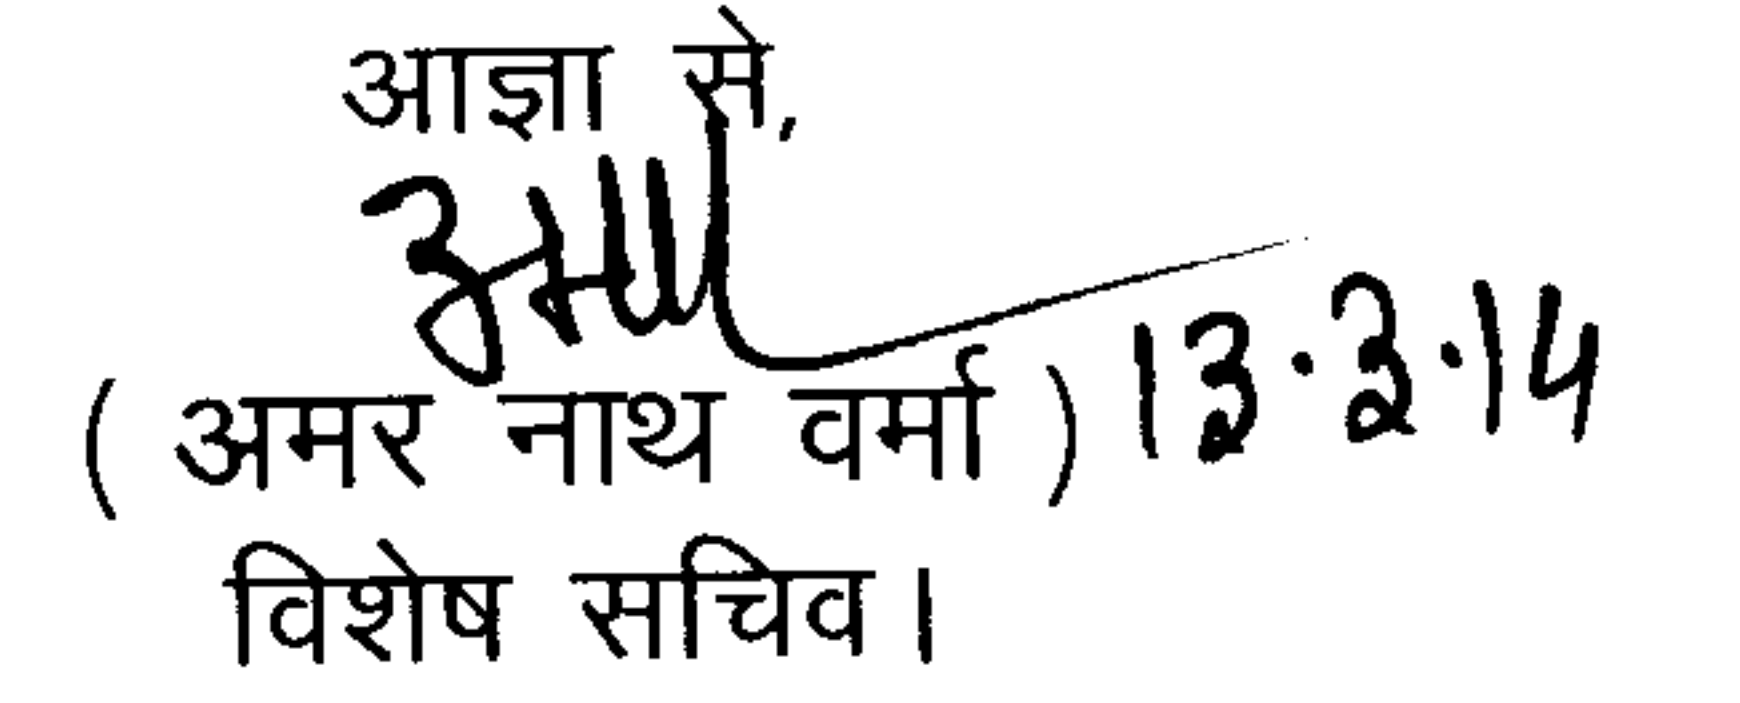 आज्ञा से,
( अमर नाथ वर्मा ) 13.3.14
विशेष सचिव।